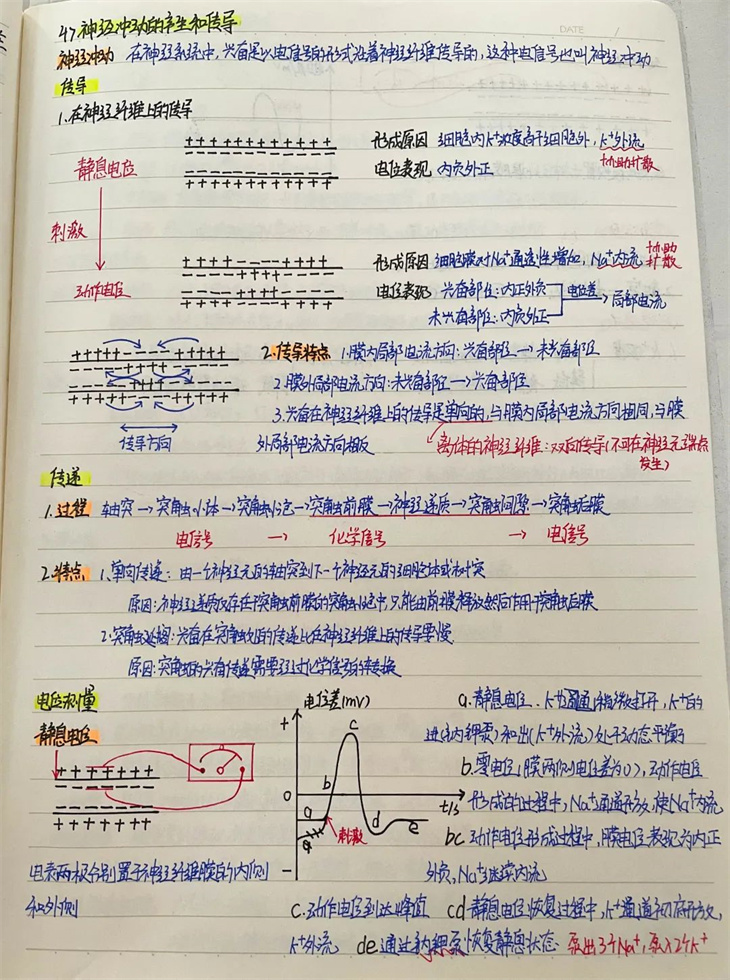 47 神经冲动的产生和传导
DATE /
神经冲动 在神经系统中，兴奋是以电信号的形式沿着神经纤维传导的，这种电信号也叫神经冲动
传导
1.在神经纤维上的传导
+ + + + + + + + + + +
形成原因 细胞内K+浓度高于细胞外，K+外流
协助扩散
静息电位
电位表现 内负外正
+ + + + + + + + + + +
刺激
+ + + + - - - - + + + +
形成原因 细胞膜对Na+通透性增加，Na+内流 协助扩散
动作电位
电位表现 兴奋部位：内正外负 电位差 局部电流
未兴奋部位：内负外正
2.传导特点 1.膜内局部电流方向：兴奋部位→未兴奋部位
2.膜外局部电流方向：未兴奋部位→兴奋部位
3.兴奋在神经纤维上的传导是单向的，与膜内局部电流方向相同，与膜
传导方向
外局部电流方向相反
离体的神经纤维：双向传导(不可在神经元端点
发生)
传递
1.过程 轴突→突触小体→突触小泡→突触前膜→神经递质→突触间隙→突触后膜
电信号 → 化学信号 → 电信号
2.特点 1.单向传递：由一个神经元的轴突到下一个神经元的细胞体或树突
原因：神经递质仅存在于突触前膜的突触小泡中，只能由前膜释放然后作用于突触后膜
2.突触延搁：兴奋在突触处的传递比在神经纤维上的传导要慢
原因：突触处的兴奋传递需要经过化学信号的转换
电位测量
静息电位
+ + + + + + +
+ + + + + + +
电表两极分别置于神经纤维膜的内侧
和外侧
电位差(mV)
+
0
-
a
b
c
d
e
t/s
刺激
a.静息电位．K+通道稍微打开，K+的
进(钠钾泵)和出(K+外流)处于动态平衡
b.零电位(膜两侧电位差为0)，动作电位
形成的过程中，Na+通道开放，使Na+内流
bc 动作电位形成过程中，膜电位表现为内正
外负，Na+继续内流
c.动作电位到达峰值 cd 静息电位恢复过程中，K+通道彻底开放，
K+外流 de 通过钠钾泵恢复静息状态 泵出3个Na+，泵入2个K+